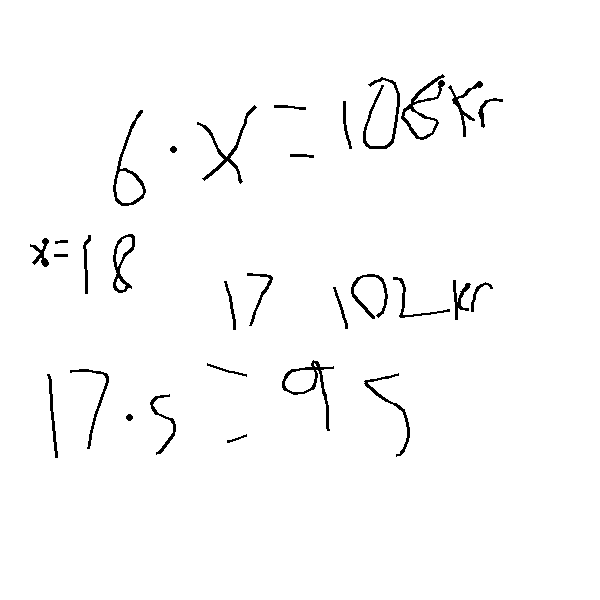 6 · x = 108 kr
x = 18
17 102 kr
17 · 5 = 95